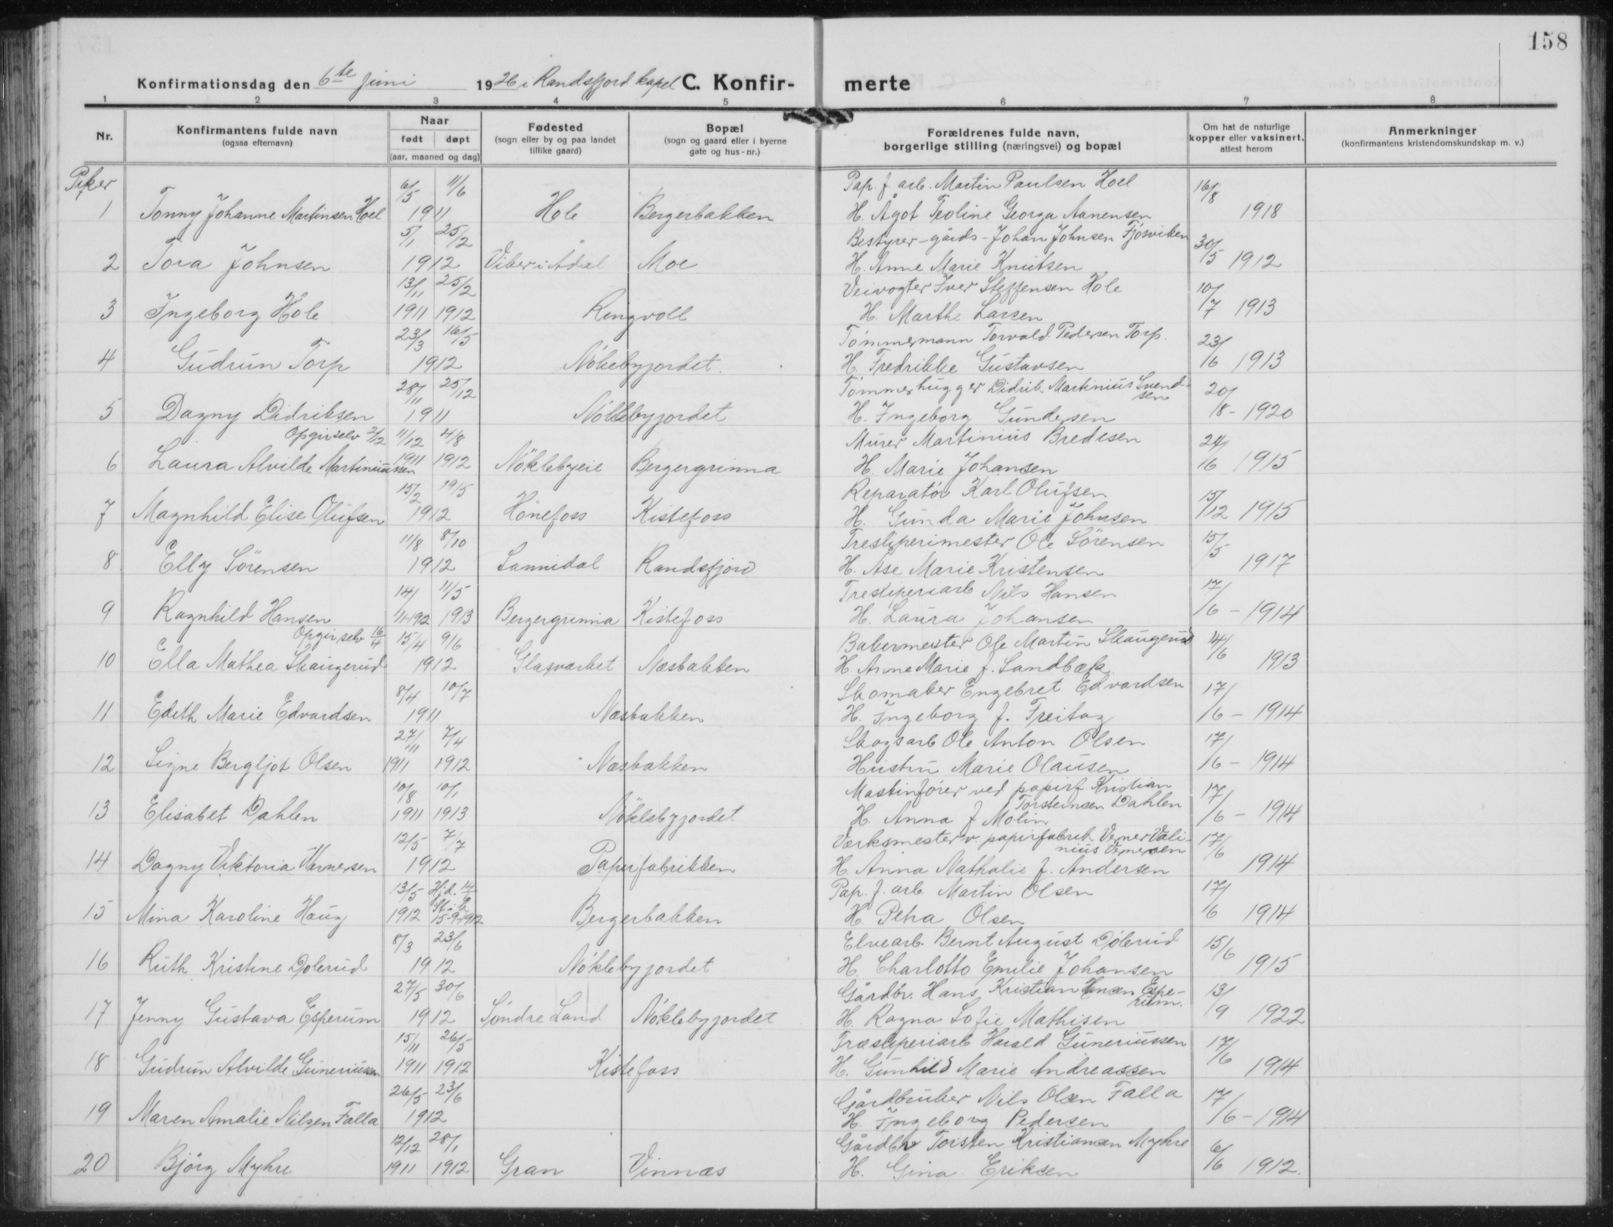 158
Konfirmationsdag den 6te juni 1926 i Randsfjord kapel C. Konfir- merte
1 2 3 4 5 6 7 8
Nr.
Konfirmantens fulde navn
(ogsaa efternavn)
Naar
født døpt
(aar, maaned og dag)
Fødested
(sogn eller by og paa landet
tillike gaard)
Bopæl
(sogn og gaard eller i byerne
gate og hus-nr.)
Forældrenes fulde navn,
borgerlige stilling (næringsvei) og bopæl
Om hat de naturlige
kopper eller vaksinert,
attest herom
Anmerkninger
(konfirmantens kristendomskundskap m. v.)
Piker
6/5 11/6 Pap. f. arb. Martin Paulsen Hoel 16/8
1 Tonny Johanne Martinsen Hoel 1911 Hole Bergerbakken H. Ågot Teoline Georga Aanensen 1918
5/1 25/2 Bestyrer-gårds-Johan Johnsen Fjøsviken 30/5
2 Tora Johnsen 1912 Viker i Ådal Moe H. Anne Marie Knutsen 1912
13/11 25/2 Veivogter Iver Steffensen Hole 10/7
3 Ingeborg Hole 1911 1912 Ringvoll H. Marthe Larsen 1913
23/3 16/5 Tømmermann Torvald Pedersen Torp. 23/
4 Gudrun Torp 1912 Nøklebyjordet. H. Fredrikke Gustavsen 16 1913
28/11 25/12 Tømmerhugger Didrik Martinius Svend-
sen 20/
5 Dagny Didriksen 1911 Nøklebyjordet H. Ingeborg Gundersen /8 - 1920
Opgir selv 2/2 11/12 4/8 Murer Martinius Bredesen 24/
6 Laura Alvilde Martiniussen 1911 1912 Nøklebyeie Bergergrinna H. Marie Johansen 16 1915
15/2 19/5 Reparatør Karl Olufsen 15/12
7 Magnhild Elise Olufsen 1912 Hønefoss Kistefoss H. Gunda Marie Johnsen 1915
11/8 8/10 Tresliperimester Ole Sørensen 15/5
8 Elly Sørensen 1912 Sannidal Randsfjord H. Ase Marie Kristensen 1917
14/ 11/5 Tresliperiarb Nils Hansen 17/
9 Ragnhild Hansen 1913 Bergergrinna Kistefoss H. Laura Johansen /6 - 1914
Opgir selv 16/4 15/4 9/6 Bakermester Ole Martin Skaugerud 14/6
10 Ella Mathea Skaugerud 1912 Glasværket Næsbakken H. Anne Marie f. Sandbæk 1913
8/4 10/7 Skomaker Engebret Edvardsen 17/
11 Edith Marie Edvardsen 1911 Næsbakken H. Ingeborg f. Freitag /6 - 1914
27/11 7/4 Skogsarb Ole Anton Olsen 17/
12 Signe Bergljot Olsen 1911 1912 Næsbakken Hustru Marie Olausen /6 - 1914
10/8 10/1 Mastinfører ved papirf Kristian
Torsteinsen Dahlen 17/
13 Elisabet Dahlen 1911 1913 Nøklebyjordet H. Anna f Molin /6 - 1914
12/5 7/7 Værksmester v papirfabrik Verner Vali-
nius Vernersen 17/6
14 Dagny Viktoria Vernersen 1912 Papirfabrikken H. Anna Nathalie f. Andersen 1914
13/5 Hjd. 14/ Pap. f. arb Martin Olsen 17/
15 Mina Karoline Haug 1912 15-9-1912 Bergerbakken H Petra Olsen /6 1914
8/3 23/6 Elvearb. Bernt August Dølerud 15/6
16 Ruth Kristine Dølerud 1912 Nøklebyjordet H. Charlotte Emilie Johansen 1915
27/5 30/6 Gårdbr. Hans Kristian Hansen Espe-
rum. 13/
17 Jenny Gustava Esperum 1912 Søndre Land Nøklebyjordet H. Ragna Sofie Mathisen /9 1922
15/11 26/5 Træsliperiarb Harald Guneriussen 17/6
18 Gudrun Alvilde Guneriussen 1911 1912 Kistefoss H. Gunhild Marie Andreassen 1914
26/5 23/6 Gårdbruker Nils Olsen Falla 17/
19 Maren Amalie Nilsen Falla 1912 H. Ingeborg Pedersen /6 - 1914
12/12 28/1 Gårdbr Torsten Kristiansen Myhre 6/6
20 Bjørg Myhre 1911 1912 Gran Vinnæs H. Gina Eriksen 1912.